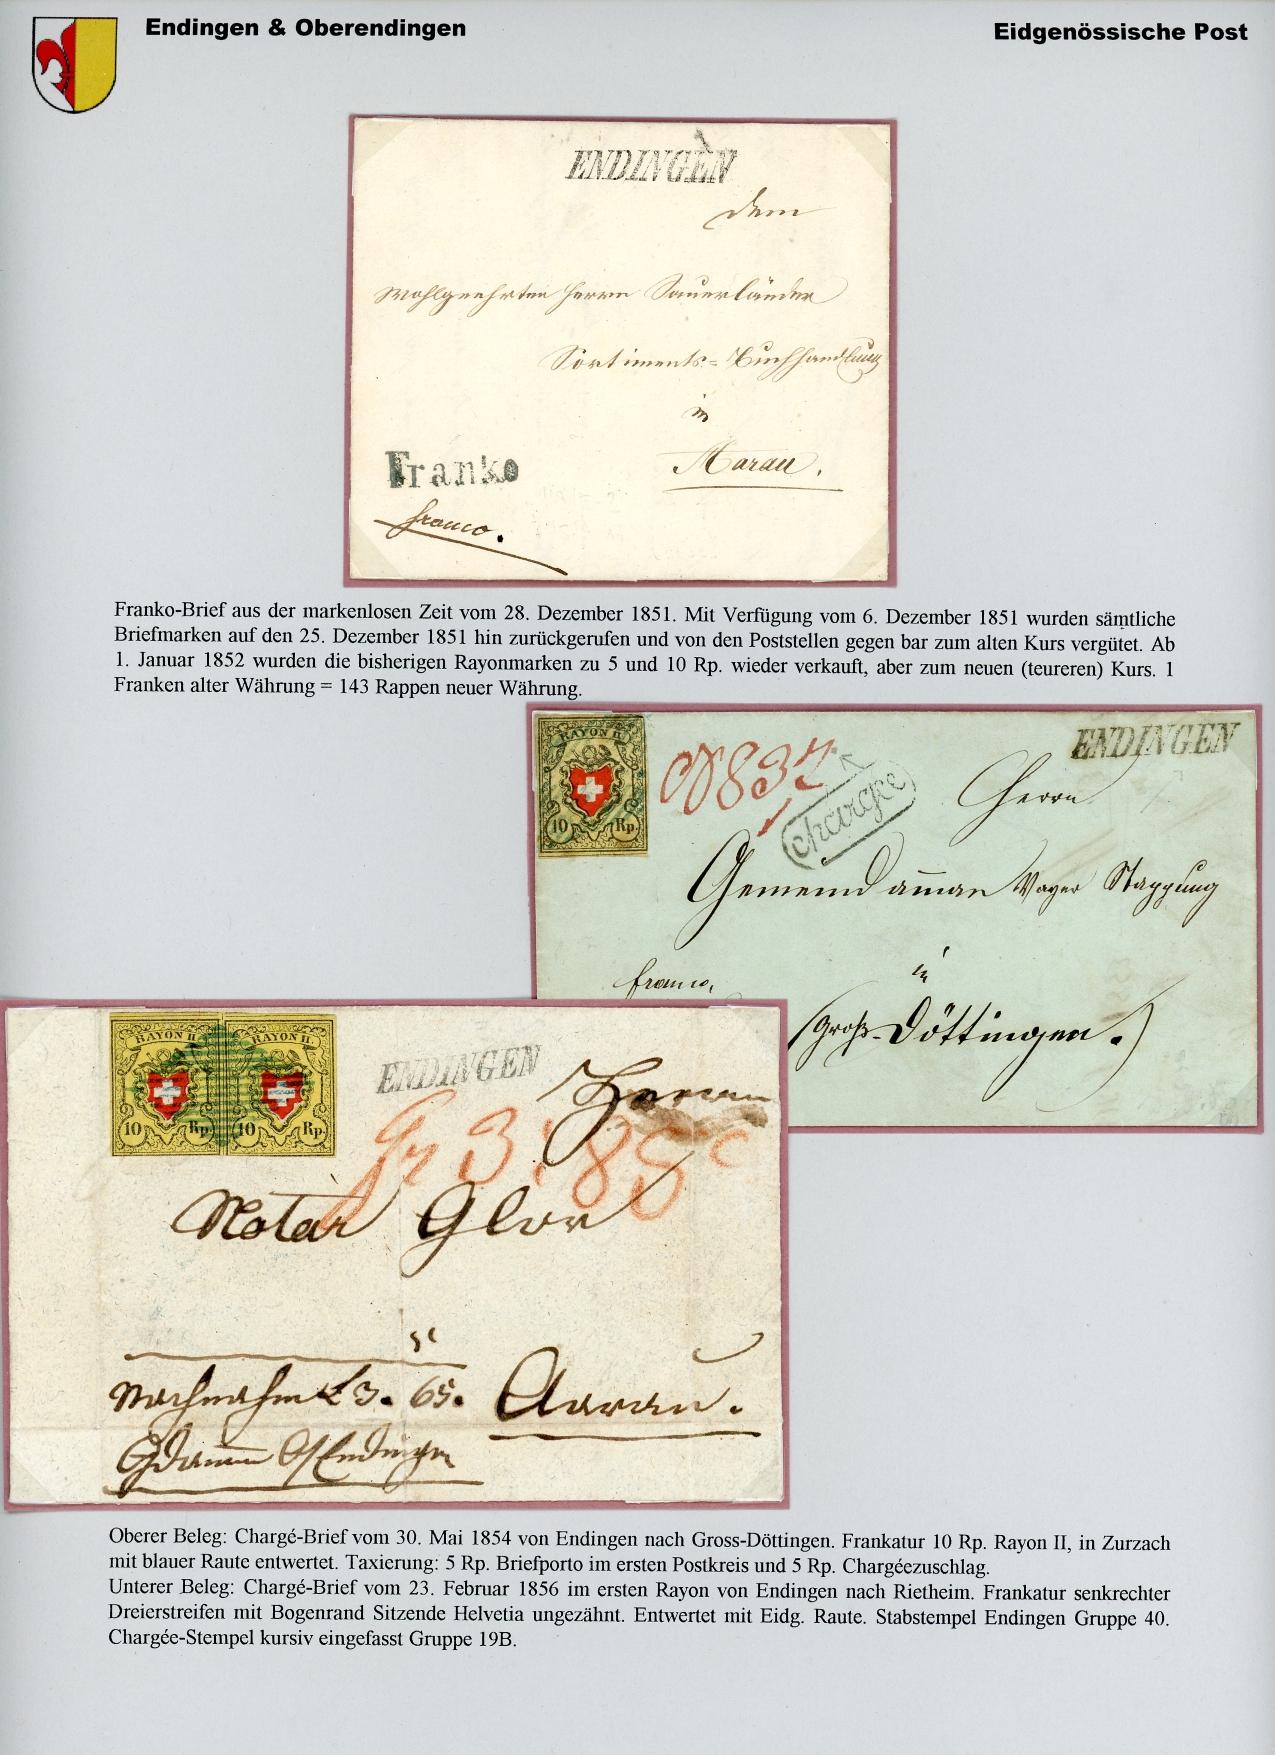 Endingen & Oberendingen
Eidgenössische Post
ENDINGEN
dem
Wohlgeehrten Herrn Sauerländer
Sortiments-Buchhandlung
in
Aarau.
Franko
franco.
Franko-Brief aus der markenlosen Zeit vom 28. Dezember 1851. Mit Verfügung vom 6. Dezember 1851 wurden sämtliche
Briefmarken auf den 25. Dezember 1851 hin zurückgerufen und von den Poststellen gegen bar zum alten Kurs vergütet. Ab
1. Januar 1852 wurden die bisherigen Rayonmarken zu 5 und 10 Rp. wieder verkauft, aber zum neuen (teureren) Kurs. 1
Franken alter Währung = 143 Rappen neuer Währung.
RAYON II.
10 Rp.
ENDINGEN
chargé
Herrn
Gemeindamman
in
franco,
Groß-Döttingen.
RAYON II. RAYON II.
10 Rp. 10 Rp.
ENDINGEN
Herrn
Notar Glor
Nachnahm 3. 65. Aarau.
Endingen
Oberer Beleg: Chargé-Brief vom 30. Mai 1854 von Endingen nach Gross-Döttingen. Frankatur 10 Rp. Rayon II, in Zurzach
mit blauer Raute entwertet. Taxierung: 5 Rp. Briefporto im ersten Postkreis und 5 Rp. Chargéezuschlag.
Unterer Beleg: Chargé-Brief vom 23. Februar 1856 im ersten Rayon von Endingen nach Rietheim. Frankatur senkrechter
Dreierstreifen mit Bogenrand Sitzende Helvetia ungezähnt. Entwertet mit Eidg. Raute. Stabstempel Endingen Gruppe 40.
Chargée-Stempel kursiv eingefasst Gruppe 19B.